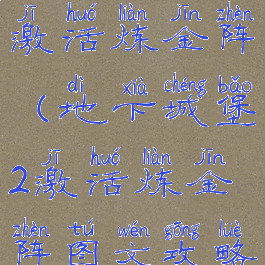 jī huó liàn jīn zhèn
激活炼金阵
dì xià chéng bǎo
（地下城堡
jī huó liàn jīn
2激活炼金
zhèn tú wén gōng lüè
阵图文攻略